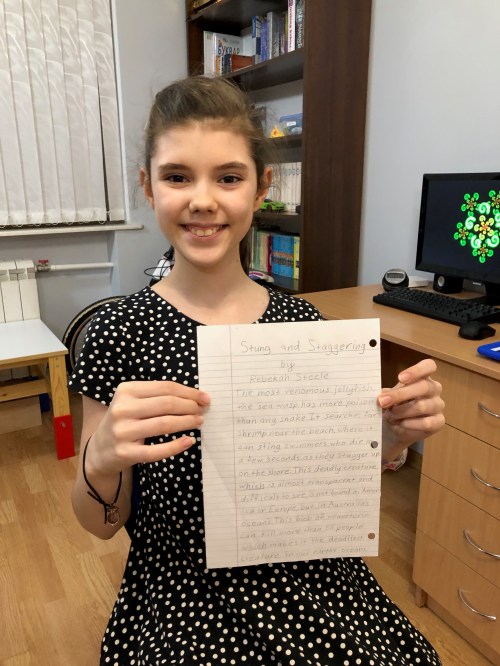 Stung and Staggering
by
Rebekah Steele
The most venomous jellyfish,
the sea wasp has more poison
than any snake. It searches for
shrimp near the beach where it
can sting swimmers who die in
a few seconds as they stagger up
on the shore. This deadly creature
which is almost transparent and
difficult to see is not found in
or Europe, but in Australia's
oceans. This blob of
can kill more than 60 people
which makes it the deadliest
creature in our